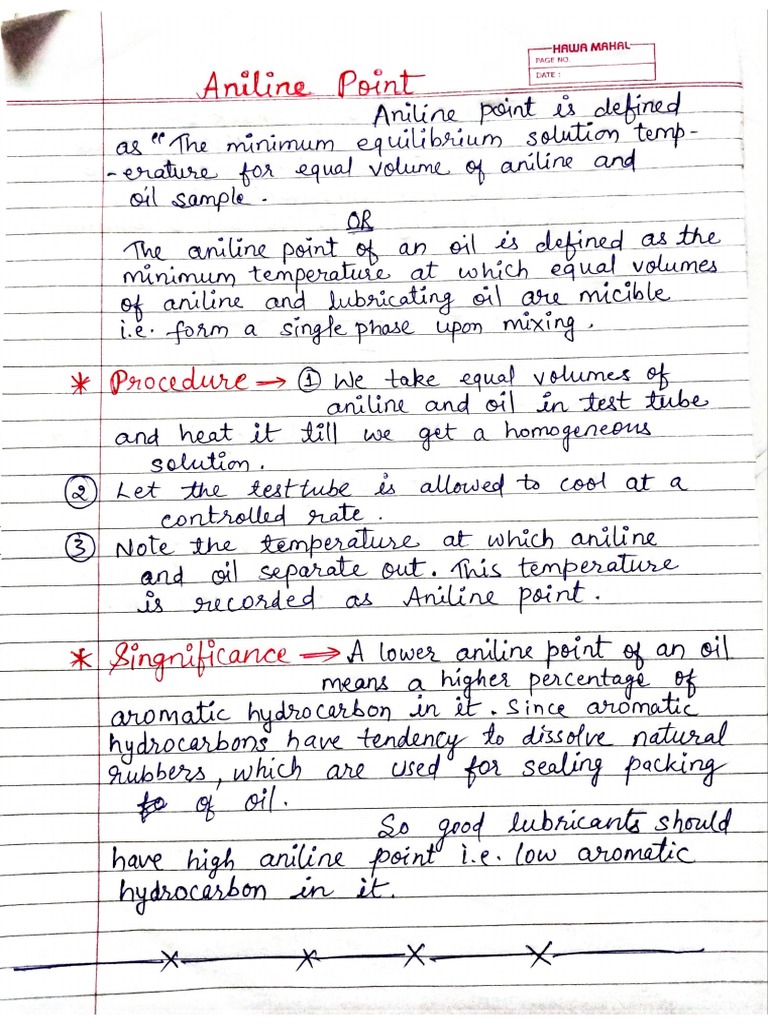 HAWA MAHAL
PAGE NO.
DATE :
Aniline Point
Aniline point is defined
as "The minimum equilibrium solution temp-
-erature for equal volume of aniline and
oil sample.
OR
The aniline point of an oil is defined as the
minimum temperature at which equal volumes
of aniline and lubricating oil are micible
i.e. form a single phase upon mixing.
* Procedure → ① We take equal volumes of
aniline and oil in test tube
and heat it till we get a homogeneous
solution.
② Let the test tube is allowed to cool at a
controlled rate.
③ Note the temperature at which aniline
and oil separate out. This temperature
is recorded as Aniline point.
* Singnificance → A lower aniline point of an oil
means a higher percentage of
aromatic hydrocarbon in it. Since aromatic
hydrocarbons have tendency to dissolve natural
rubbers, which are used for sealing packing
of oil.
So good lubricants should
have high aniline point i.e. low aromatic
hydrocarbon in it.